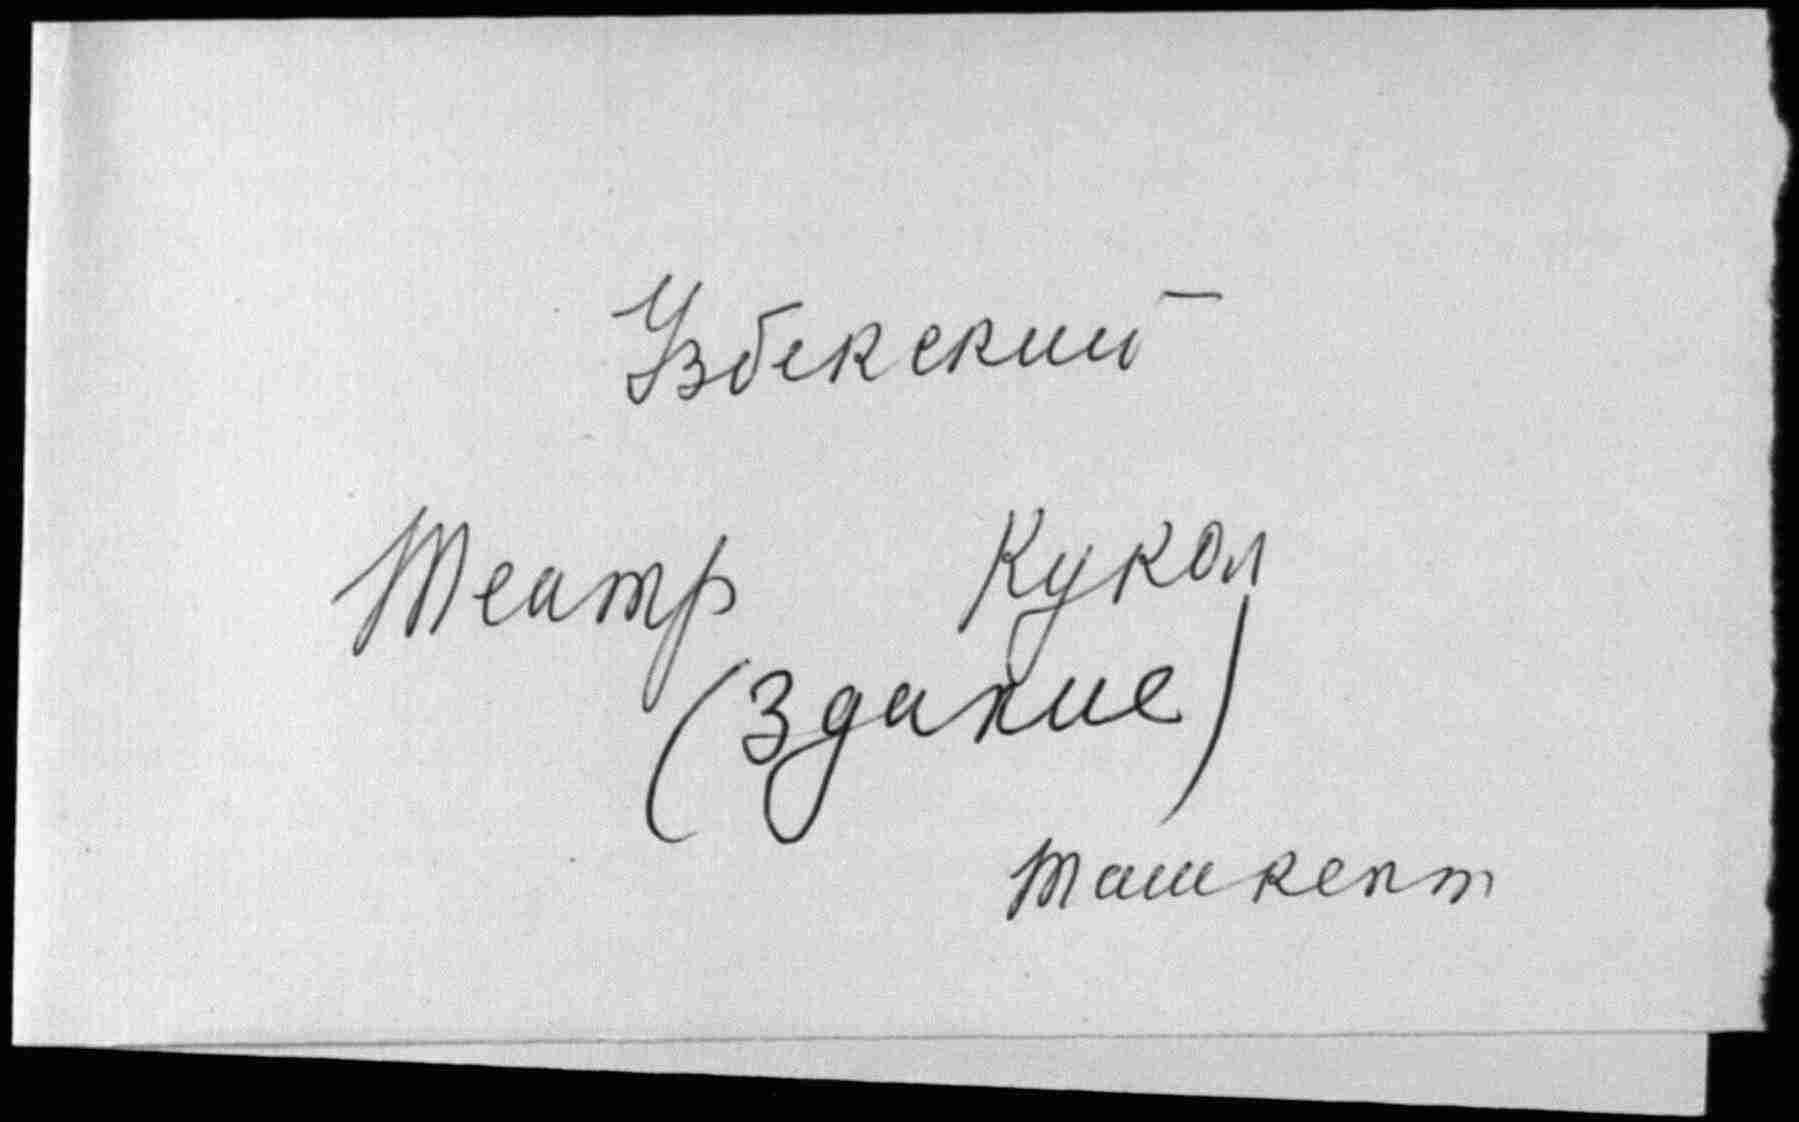 Узбекский
Театр Кукол
(Здание)
Ташкент